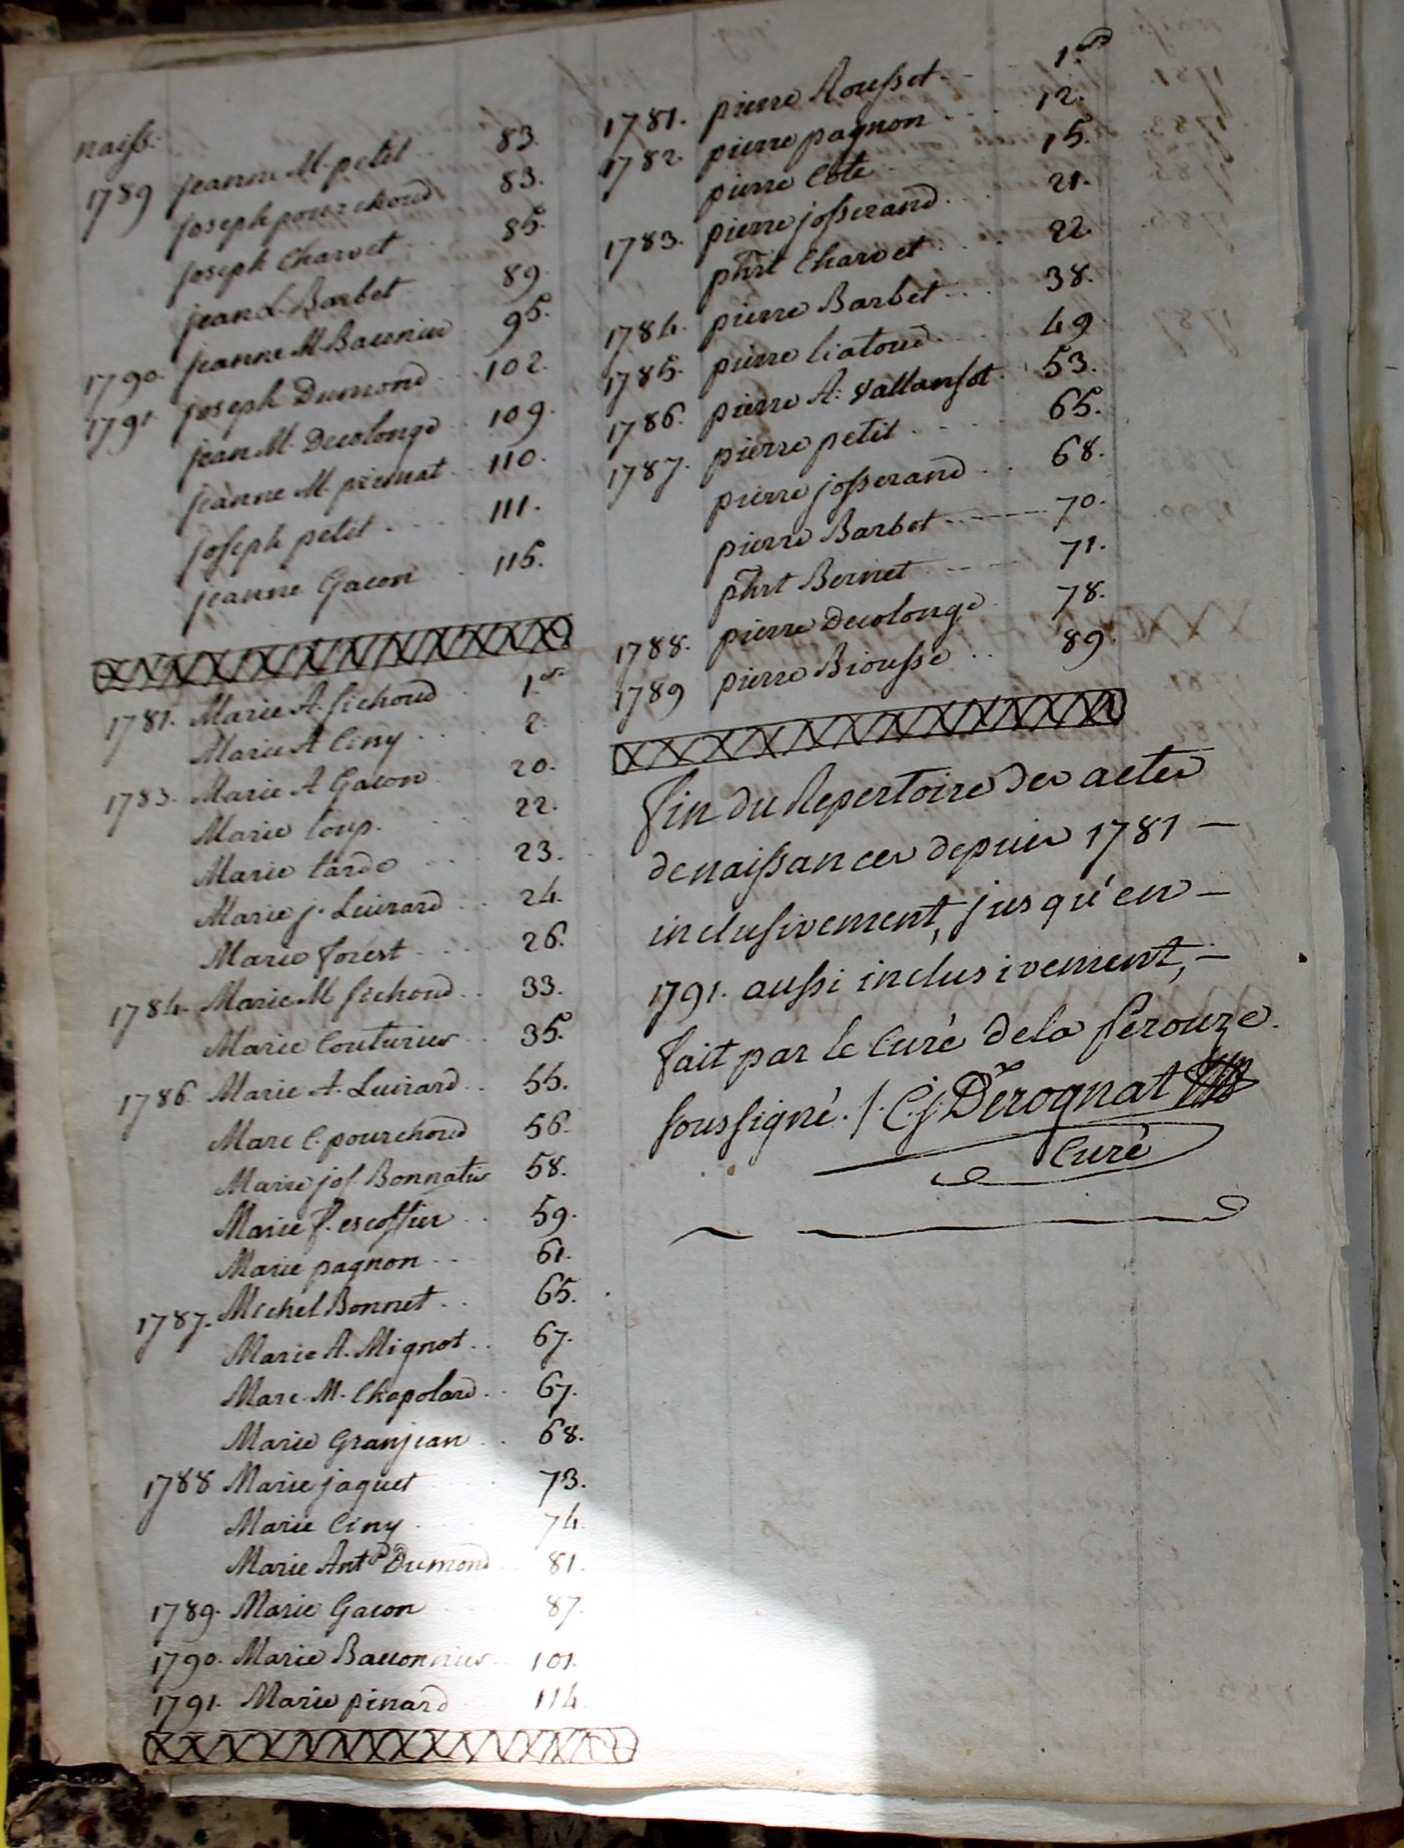 naiss.
1789 jeanne M. petit 83.
joseph pourchoud 83.
joseph Charvet 85.
jean L. Barbet 89.
1790. jeanne M. Baconnier 95.
1791. joseph Dumond 102.
jean M. Decolonge 109.
jeanne M. 110.
joseph petit 111.
jeanne Gacon 115.
1781. Marie A. fichoud 1.er
Marie A Ciny 2.
1783. Marie A Gacon 20.
Marie loup. 22.
Marie tarde 23.
Marie j. Luirard 24.
Marie forest 26.
1784. Marie M fichoud 33.
Marie Couturier 35.
1786. Marie A. Luirard 55.
Marc C. pourchoud 56.
Marie jos. Bonnatier 58.
Marie f. escoffier 59.
Marie pagnon 61.
1787. Michel Bonnet 65.
Marie A. Mignot 67.
Marc. M. Chapolard 67.
Marie Granjean 68.
1788 Marie jaquet 73.
Marie Ciny 74.
Marie Ant.e Dumond 81.
1789. Marie Gacon 87.
1790. Marie Bauonnier 101.
1791. Marie pinard 114.
1781. pierre Rousset 1.er
1782. pierre pagnon 12.
pierre Cote 15.
1783. pierre josserand 21.
phrt Charvet 22.
1784. pierre Barbet 38.
1785. pierre liatoud 49.
1786. pierre A. Vallansot 53.
1787. pierre petit 65.
pierre josserand 68.
pierre Barbet 70.
phrt Bernet 71.
1788. pierre Decolonge 78.
1789 pierre Biousse 89.
fin du Repertoire des actes
de naissances depuis 1781 —
inclusivement, jusqu'en —
1791. aussi inclusivement, —
fait par le Curé dela perouze.
soussigné. /. C.j. Dérognat
Curé